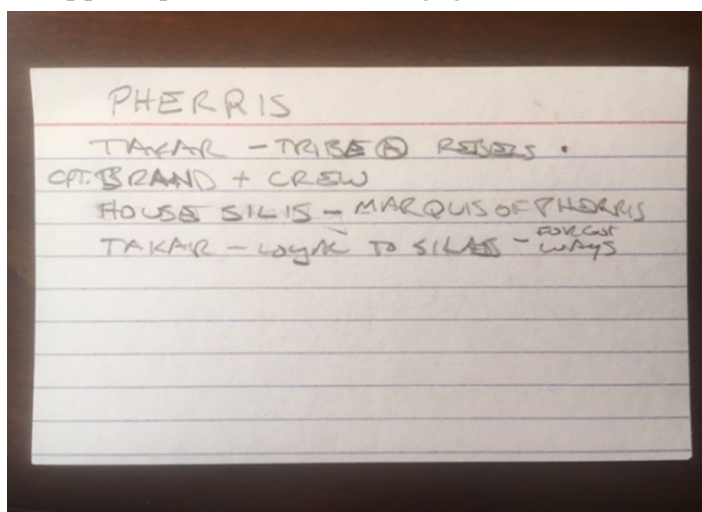 PHERRIS
TAKAR - TRIBE Ⓐ REBELS .
CPT. BRAND + CREW
HOUSE SILIS - MARQUIS OF PHERRIS
TAKAR - LOYAL TO SILAS - FORGOT WAYS